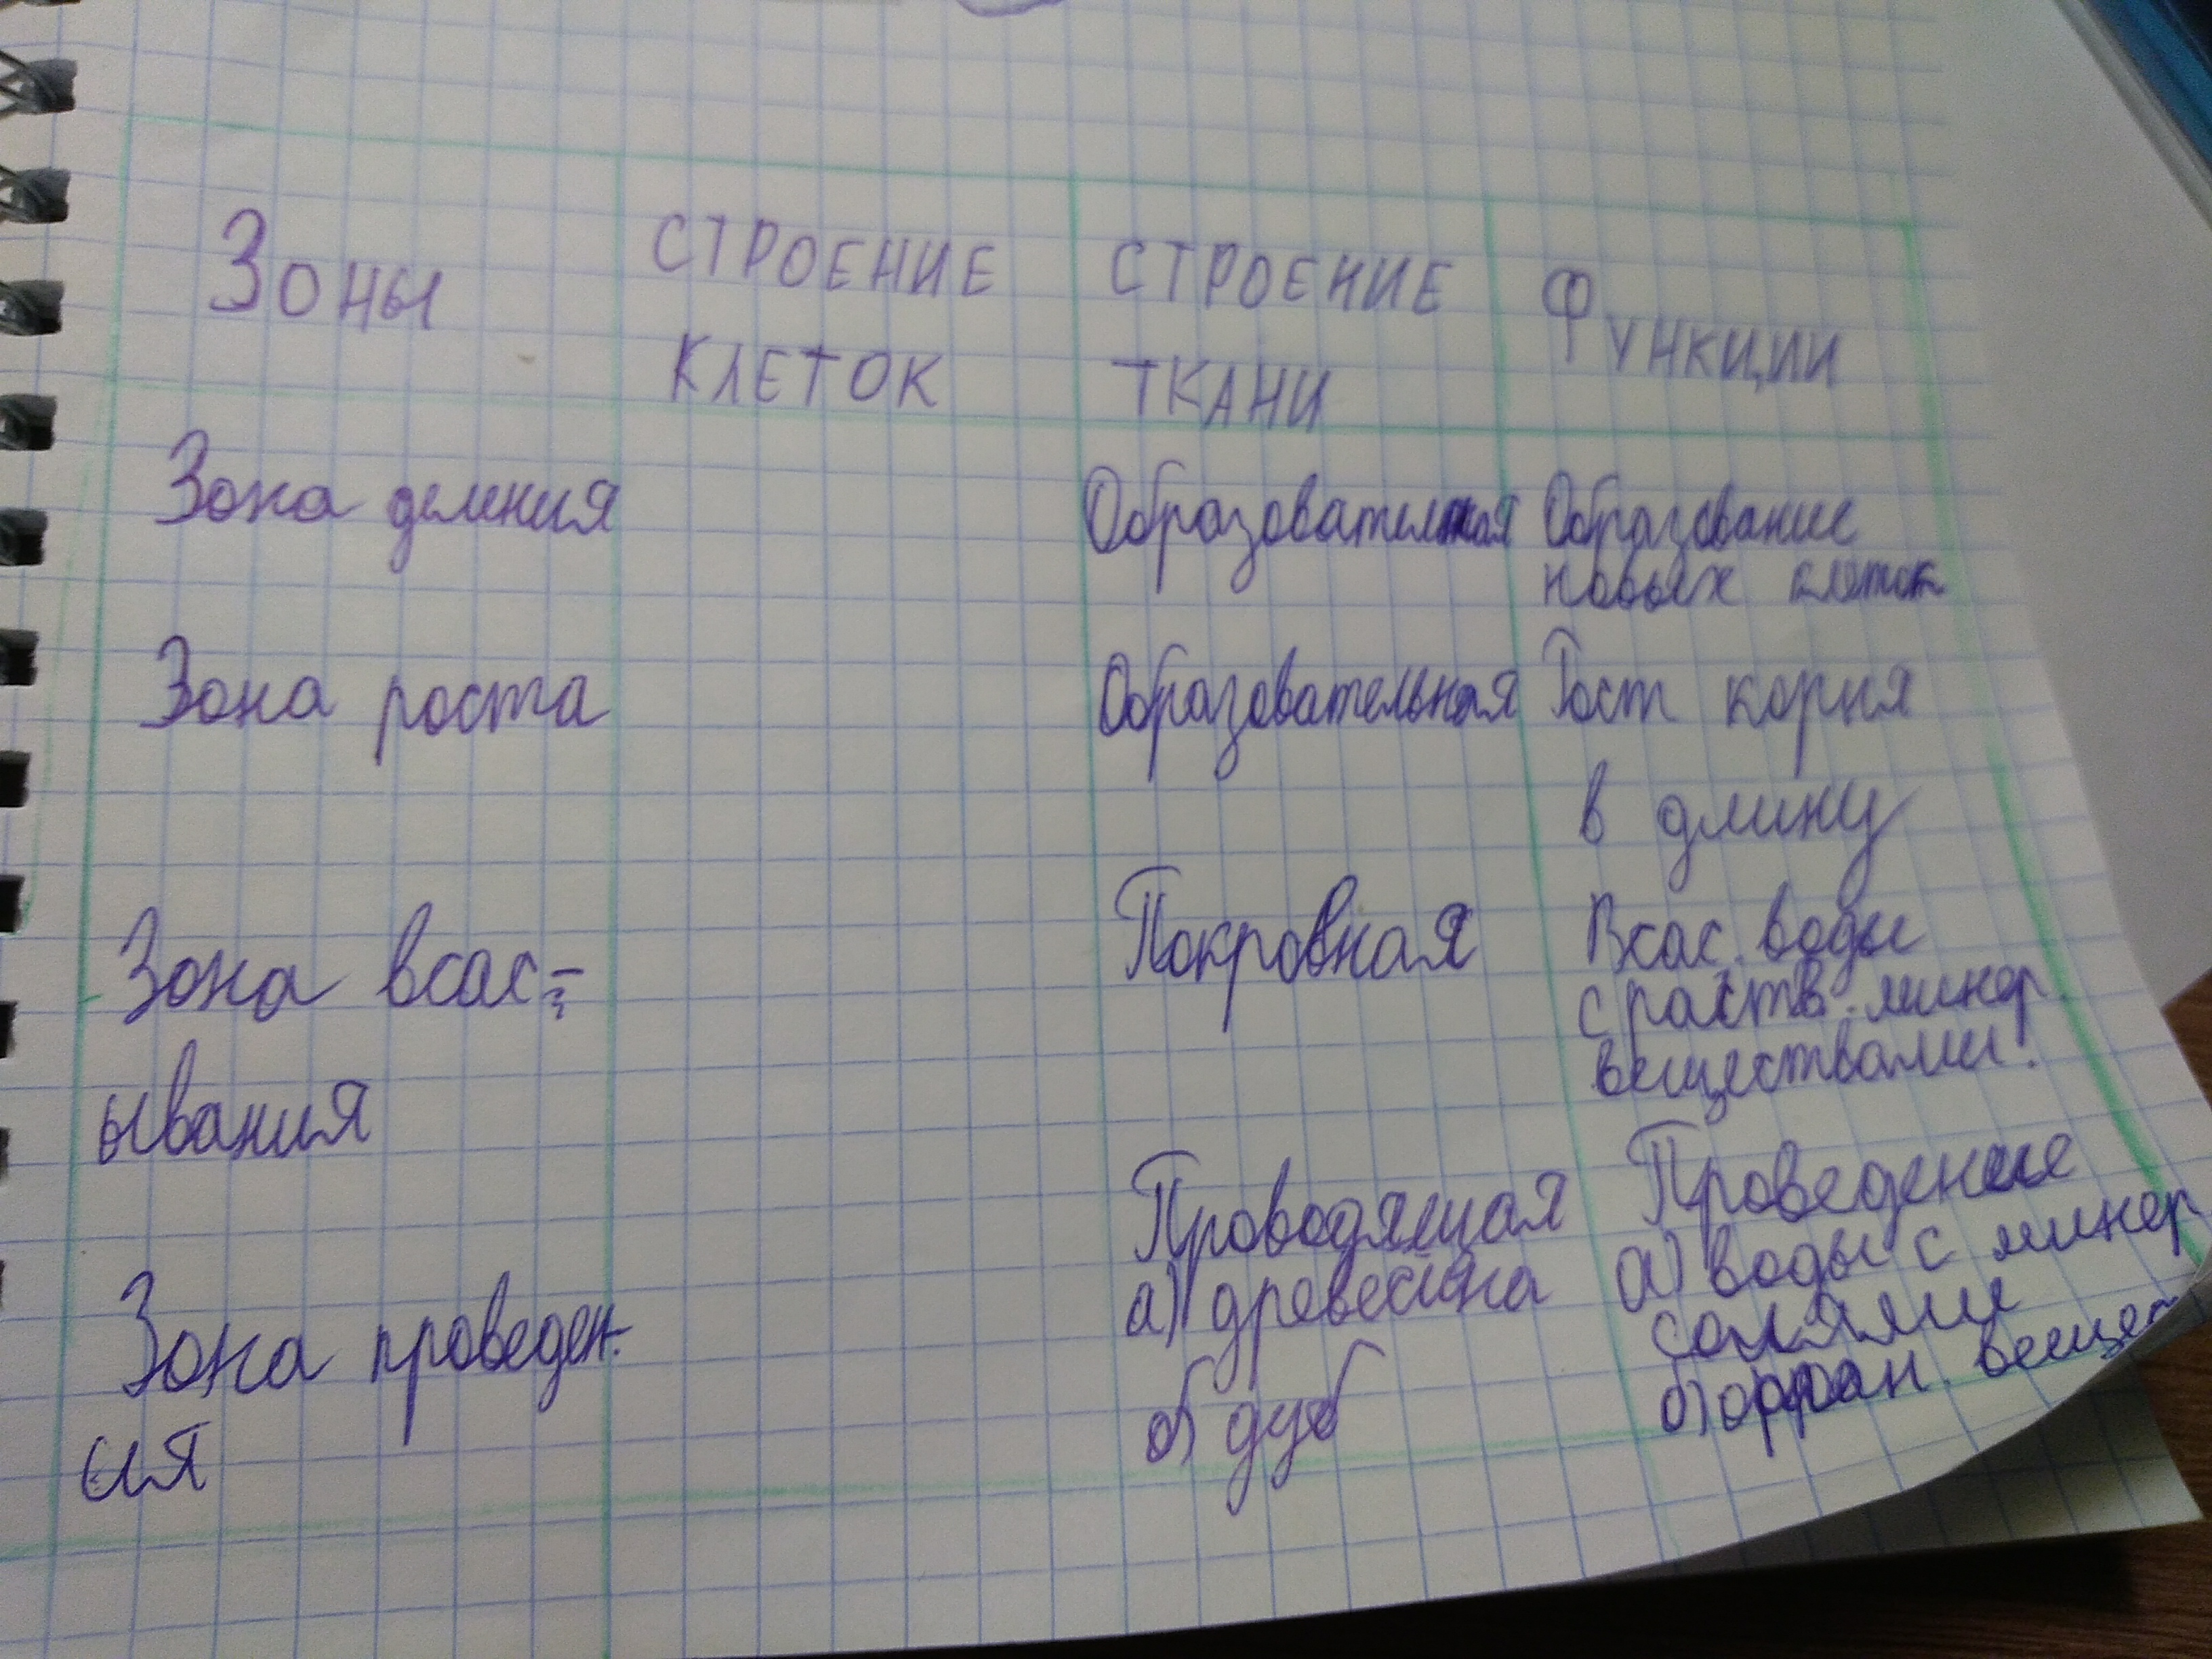 Зоны
СТРОЕНИЕ
КЛЕТОК
СТРОЕНИЕ
ТКАНИ
Функции
Зона деления
Образовательная
Образование
новых клеток
Зона роста
Образовательная
Рост корня
в длину
Зона всас-
ывания
Покровная
Всас. воды
с раств. минер.
веществами.
Зона проведен-
ия
Проводящая
а) древесина
б) дуб
Проведение
а) воды с минер
солями
б) орган. вещес